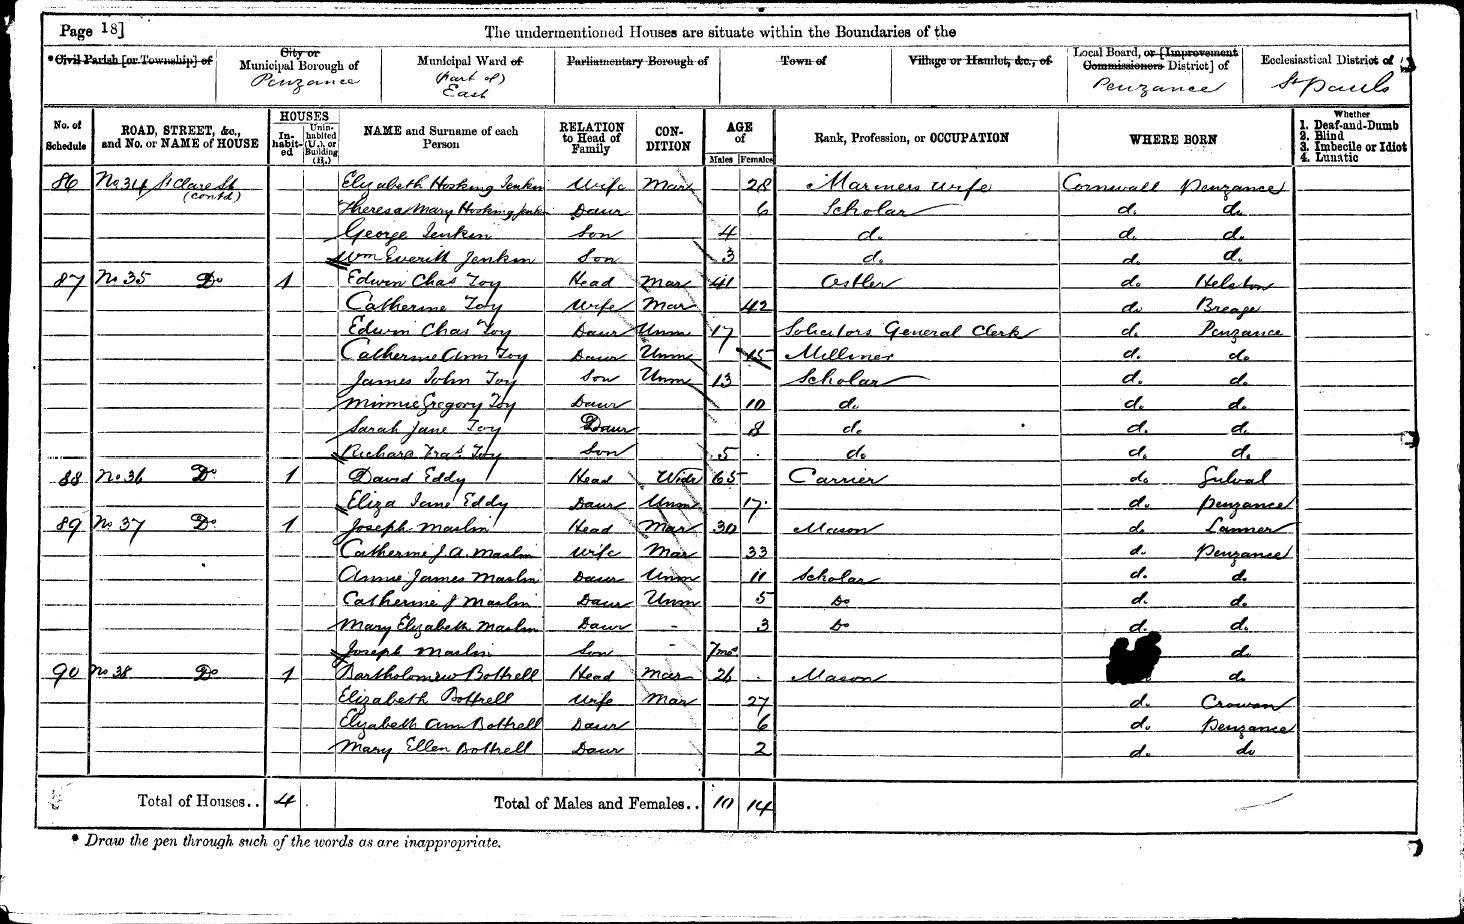 Page 18]
The undermentioned Houses are situate within the Boundaries of the
* Civil Parish [or Township] of
City or Municipal Borough of Penzance
Municipal Ward of (Part of) East
Parliamentary Borough of
Town of
Village or Hamlet, &c., of
Local Board, or [Improvement Commissioners District] of Penzance
Ecclesiastical District of St Pauls
No. of Schedule
ROAD, STREET, &c., and No. or NAME of HOUSE
HOUSES
In-habit-ed
Unin-habited (U.), or Building (B.)
NAME and Surname of each Person
RELATION to Head of Family
CON-DITION
AGE of
Males
Females
Rank, Profession, or OCCUPATION
WHERE BORN
Whether
1. Deaf-and-Dumb
2. Blind
3. Imbecile or Idiot
4. Lunatic
86 No 34 St Clare St (contd) Elizabeth Hosking Jenkin Wife Mar 28 Mariners Wife Cornwall Penzance
Theresa Mary Hosking Jenkin Daur 6 Scholar do do
George Jenkin Son 4 do do do
Wm Everitt Jenkin Son 3 do do do
87 No 35 Do 1 Edwin Chas Toy Head Mar 41 Ostler do Helston
Catherine Toy Wife Mar 42 do Breage
Edwin Chas Toy Daur Unm 17 Solicitors General Clerk do Penzance
Catherine Ann Toy Daur Unm 15 Milliner do do
James John Toy Son Unm 13 Scholar do do
Minnie Gregory Toy Daur 10 do do do
Sarah Jane Toy Daur 8 do do do
Richard Fras Toy Son 5 do do do
88 No 36 Do 1 David Eddy Head Widr 65 Carrier do Gulval
Eliza Jane Eddy Daur Unm 17 do Penzance
89 No 37 Do 1 Joseph Maslin Head Mar 30 Mason do Lanner
Catherine J. A. Maslin Wife Mar 33 do Penzance
Annie James Maslin Daur Unm 11 Scholar do do
Catherine J Maslin Daur Unm 5 Do do do
Mary Elizabeth Maslin Daur - 3 Do do do
Joseph Maslin Son - 7mos do
90 No 38 Do 1 Bartholomew Bottrell Head Mar 26 Mason do
Elizabeth Bottrell Wife Mar 27 do Crowan
Elizabeth Ann Bottrell Daur 6 do Penzance
Mary Ellen Bottrell Daur 2 do do
Total of Houses.. 4
Total of Males and Females.. 10 14
* Draw the pen through such of the words as are inappropriate.